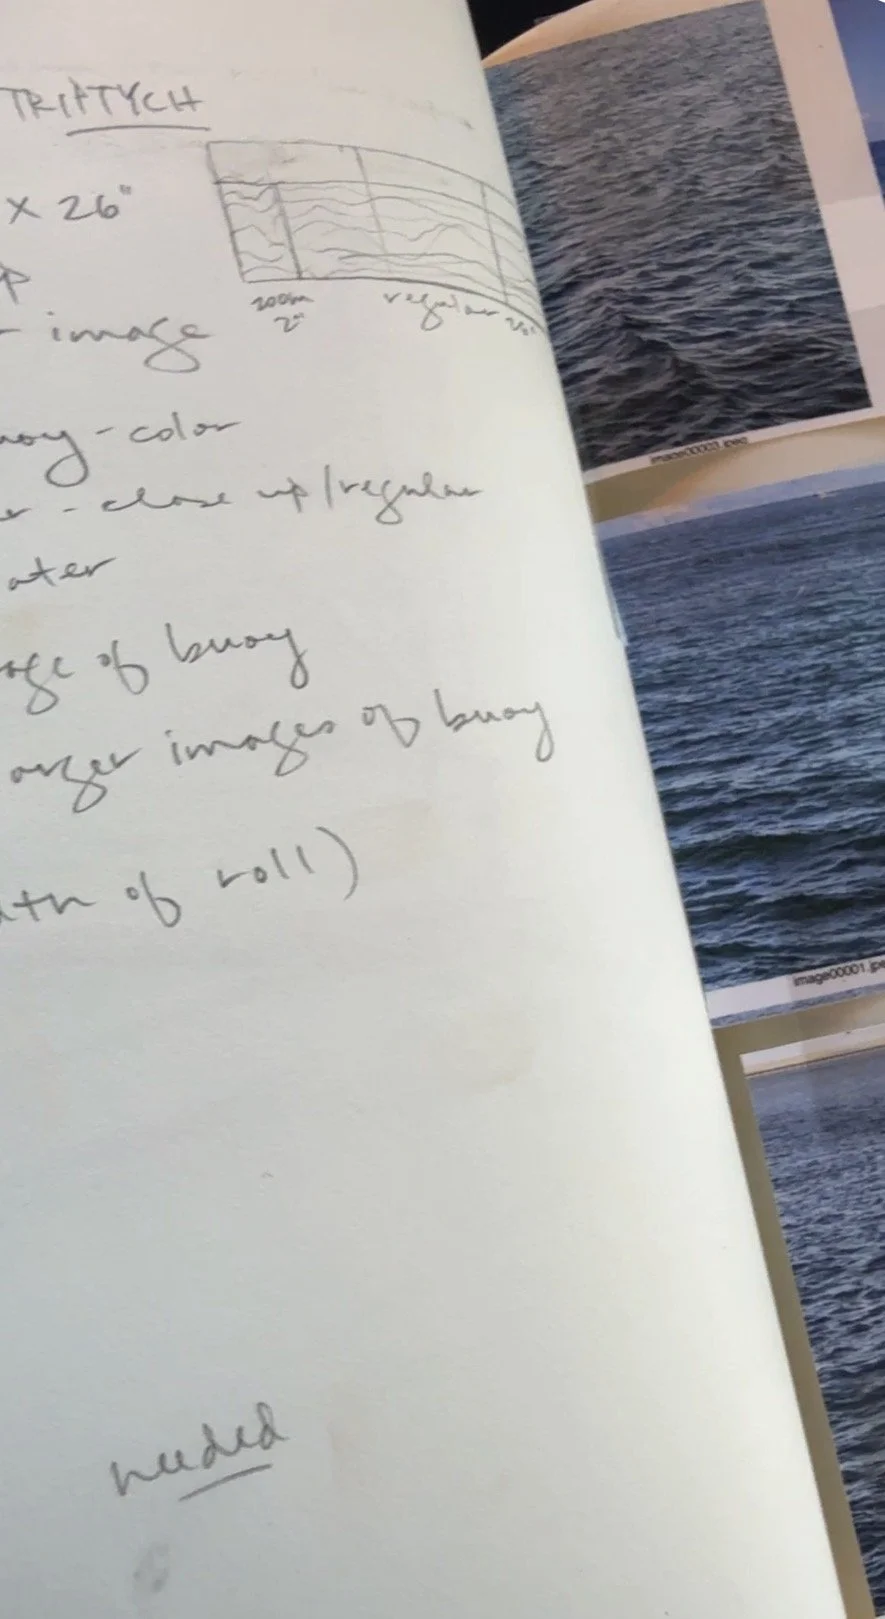 TRIPTYCH
x 26"
zoom
2"
regular
image
- color
- close up/regular
ater
of buoy
arger images of buoy
dth of roll)
needed
image00003.jpeg
image00001.jpe